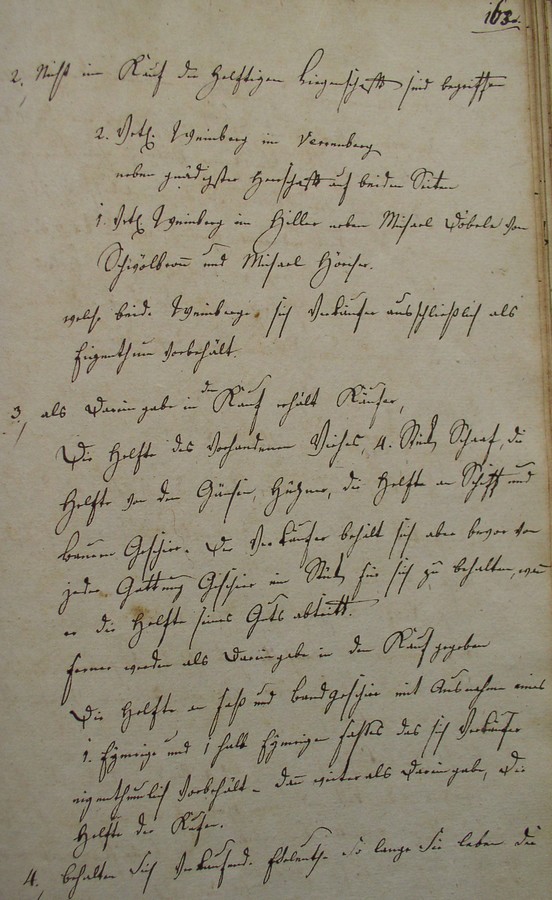 163.
2., Nicht im Kauf der helftigen Liegenschafft sind begriffen
2. Vrtl. Weinberg im Verrenberg
neben gnädigster Herrschafft auf beiden Seiten
1. Vrtl. Weinberg im Hiller neben Michael Döbele von
und Michael
welche beide Weinberge sich Verkäufer ausschließlich als
Eigenthum vorbehält.
3., als Dareingabe in den Kauf erhält Käufer,
Die Helfte des vorhandenen Viehes, 4. Stük Schaaf, die
Helfte von den Gänsen, Hühner, die Helfte an Schiff und
Bauren Geschirr. Der Verkäufer behält sich aber bevor von
jeder Gattung Geschirr ein Stük für sich zu behalten, wenn
er die Helfte seines Guts abtritt.
Ferner werden als Dareingabe in den Kauf gegeben
Die Helfte an Faß und Bandgeschirr mit Ausnahme eines
1. Eymerige und 1 halb Eymerigen Fasses das sich Verkäufer
eigenthumlich vorbehält - dann weiter als Dareingabe, die
Helfte der
4., behalten sich Verkaufend. Eheleuthe so lange Sie leben die